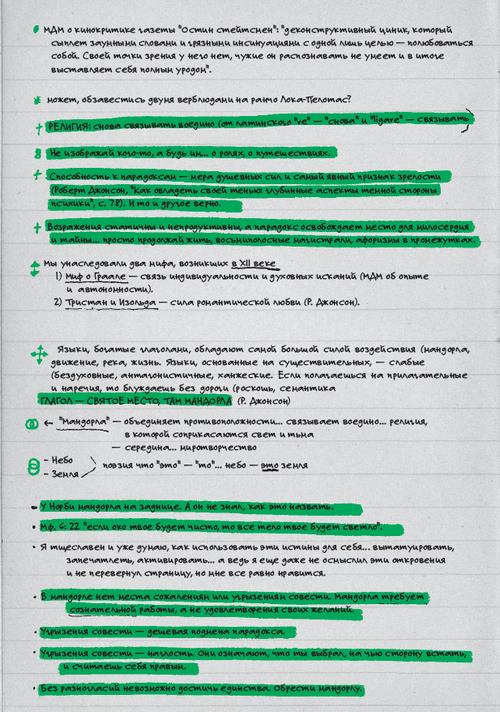 МДМ о кинокритике газеты "Остин стейтсмен": "деконструктивный циник, который
сыплет заумными словами и грязными инсинуациями с одной лишь целью — полюбоваться
собой. Своей точки зрения у него нет, чужие он распознавать не умеет и в итоге
выставляет себя полным уродом".
может, обзавестись двумя верблюдами на ранчо Лока-Пелотас?
РЕЛИГИЯ: снова связывать воедино (от латинского "re" — "снова" и "ligare" — связывать)
Не изображай кого-то, а будь им... о ролях, о путешествиях.
Способность к парадоксам — мера душевных сил и самый явный признак зрелости
(Роберт Джонсон, "Как овладеть своей тенью: глубинные аспекты темной стороны
психики", с. 78). И то и другое верно.
Возражения статичны и непродуктивны, а парадокс освобождает место для милосердия
и тайны... просто продолжай жить, восьмиполосные магистрали, афоризмы в промежутках.
Мы унаследовали два мифа, возникших в XII веке
1) Миф о Граале — связь индивидуальности и духовных исканий (МДМ об опыте
и автономности).
2) Тристан и Изольда — сила романтической любви (Р. Джонсон).
Языки, богатые глаголами, обладают самой большой силой воздействия (мандорла,
движение, река, жизнь. Языки, основанные на существительных, — слабые
(бездуховные, антагонистичные, ханжеские. Если полагаешься на прилагательные
и наречия, то блуждаешь без дороги (роскошь, семантика
ГЛАГОЛ — СВЯТОЕ МЕСТО, ТАМ МАНДОРЛА (Р. Джонсон)
← "Мандорла" — объединяет противоположности... связывает воедино... религия,
в которой соприкасаются свет и тьма
— середина... миротворчество
- Небо
- Земля
поэзия что "это" — "то"... небо — это земля
- У Норби мандорла на заднице. А он не знал, как это назвать.
• Мф. 6: 22 "если око твое будет чисто, то все тело твое будет светло".
• Я тщеславен и уже думаю, как использовать эти истины для себя... вытатуировать,
запечатлеть, активировать... а ведь я еще даже не осмыслил эти откровения
и не перевернул страницу, но мне все равно нравится.
• В мандорле нет места сожалениям или угрызениям совести. Мандорла требует
сознательной работы, а не удовлетворения своих желаний.
• Угрызения совести — дешевая подмена парадокса.
• Угрызения совести — наглость. Они означают, что ты выбрал, на чью сторону встать,
и считаешь себя правым.
• Без разногласий невозможно достичь единства. Обрести мандорлу.